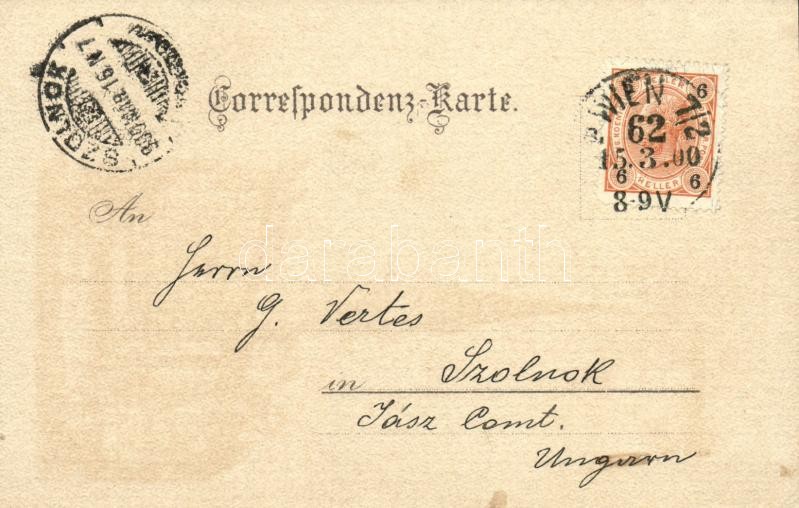 SZOLNOK
Correspondenz-Karte.
WIEN 7/2
62
15.3.00
8-9V
6
6
6
HELLER
An
Herrn
G. Vertes
in Szolnok
Jász Comt.
Ungarn
darabanth